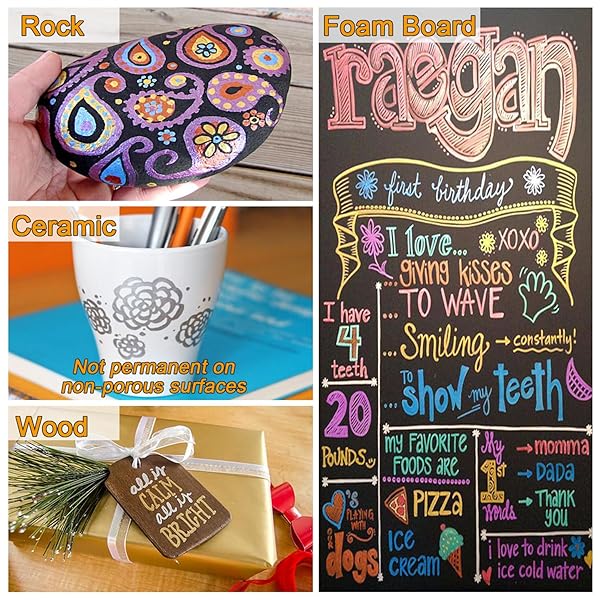 Rock
Ceramic
Not permanent on
non-porous surfaces
Wood
all is
CALM
all is
BRIGHT
Foam Board
raegan
first birthday
I love...
XOXO
...giving kisses
...TO WAVE
...Smiling → constantly!
...to show my teeth
I have
4
teeth
20
POUNDS
my FAVORITE
FOODS ARE
PIZZA
ICE
CREAM
My
1st
words
→ momma
→ DADA
→ THANK
YOU
's
PLAYING
WITH
dogs
i love to drink
ice cold water